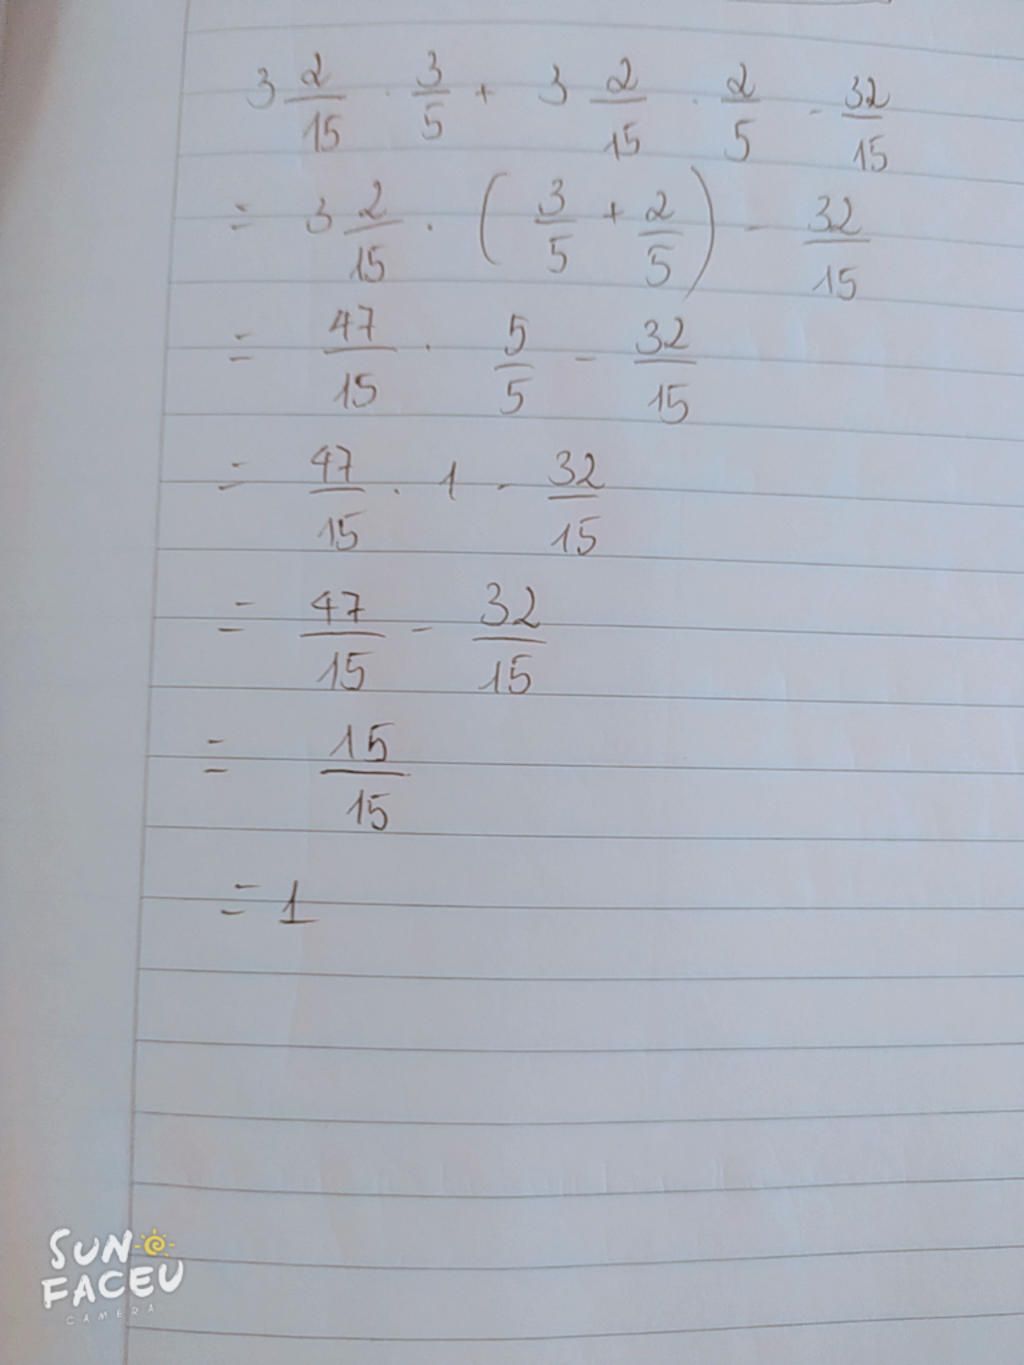 3 2/15 . 3/5 + 3 2/15 . 2/5 - 32/15
= 3 2/15 . ( 3/5 + 2/5 ) - 32/15
= 47/15 . 5/5 - 32/15
= 47/15 . 1 - 32/15
= 47/15 - 32/15
= 15/15
= 1
SUN
FACEU
CAMERA